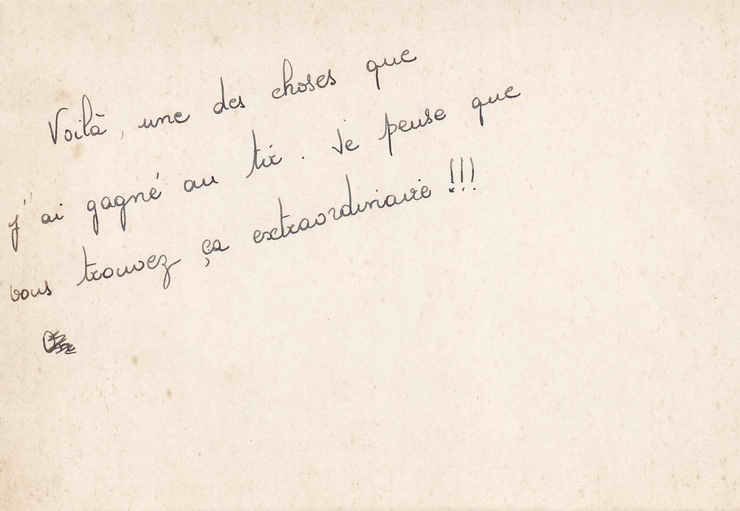 Voilà, une des choses que
j'ai gagné au tir. Je pense que
vous trouvez ça extraordinaire !!!